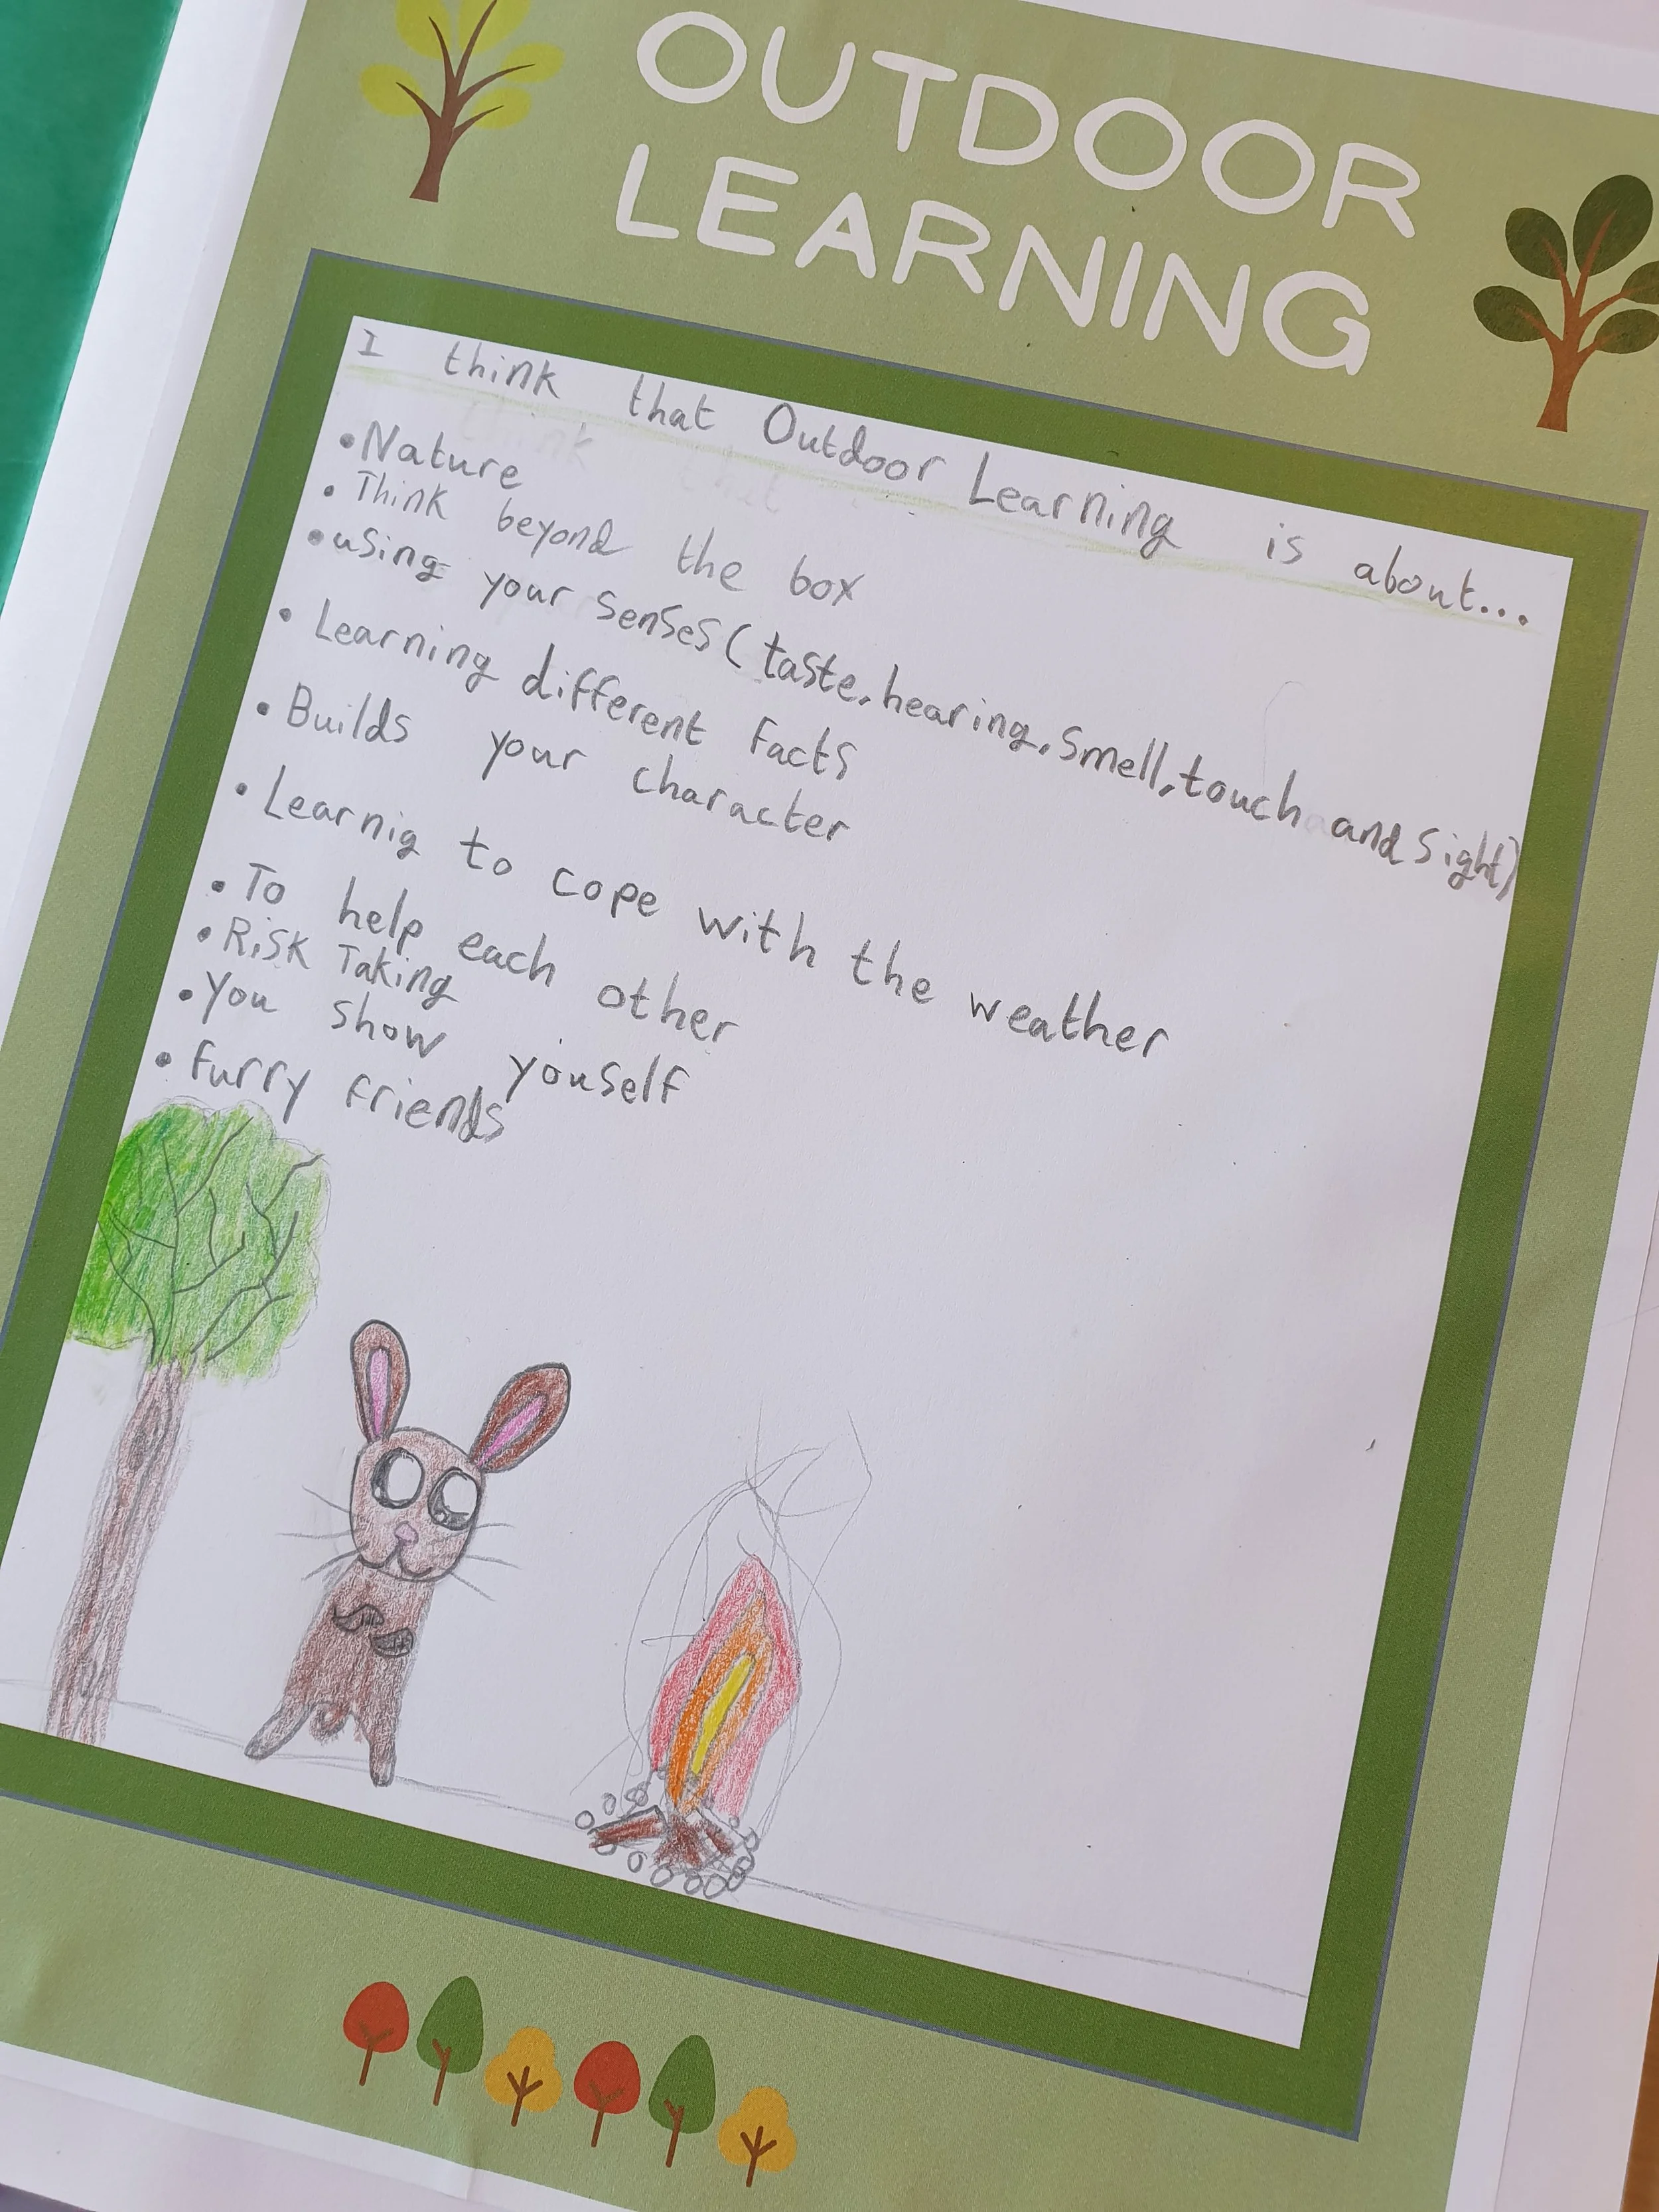 OUTDOOR
LEARNING
I think that Outdoor Learning is about...
•Nature
• Think beyond the box
•using your senses (taste, hearing, smell, touch and sight)
• Learning different facts
• Builds your character
• Learnig to cope with the weather
• To help each other
• Risk Taking
•You show youself
• furry friends